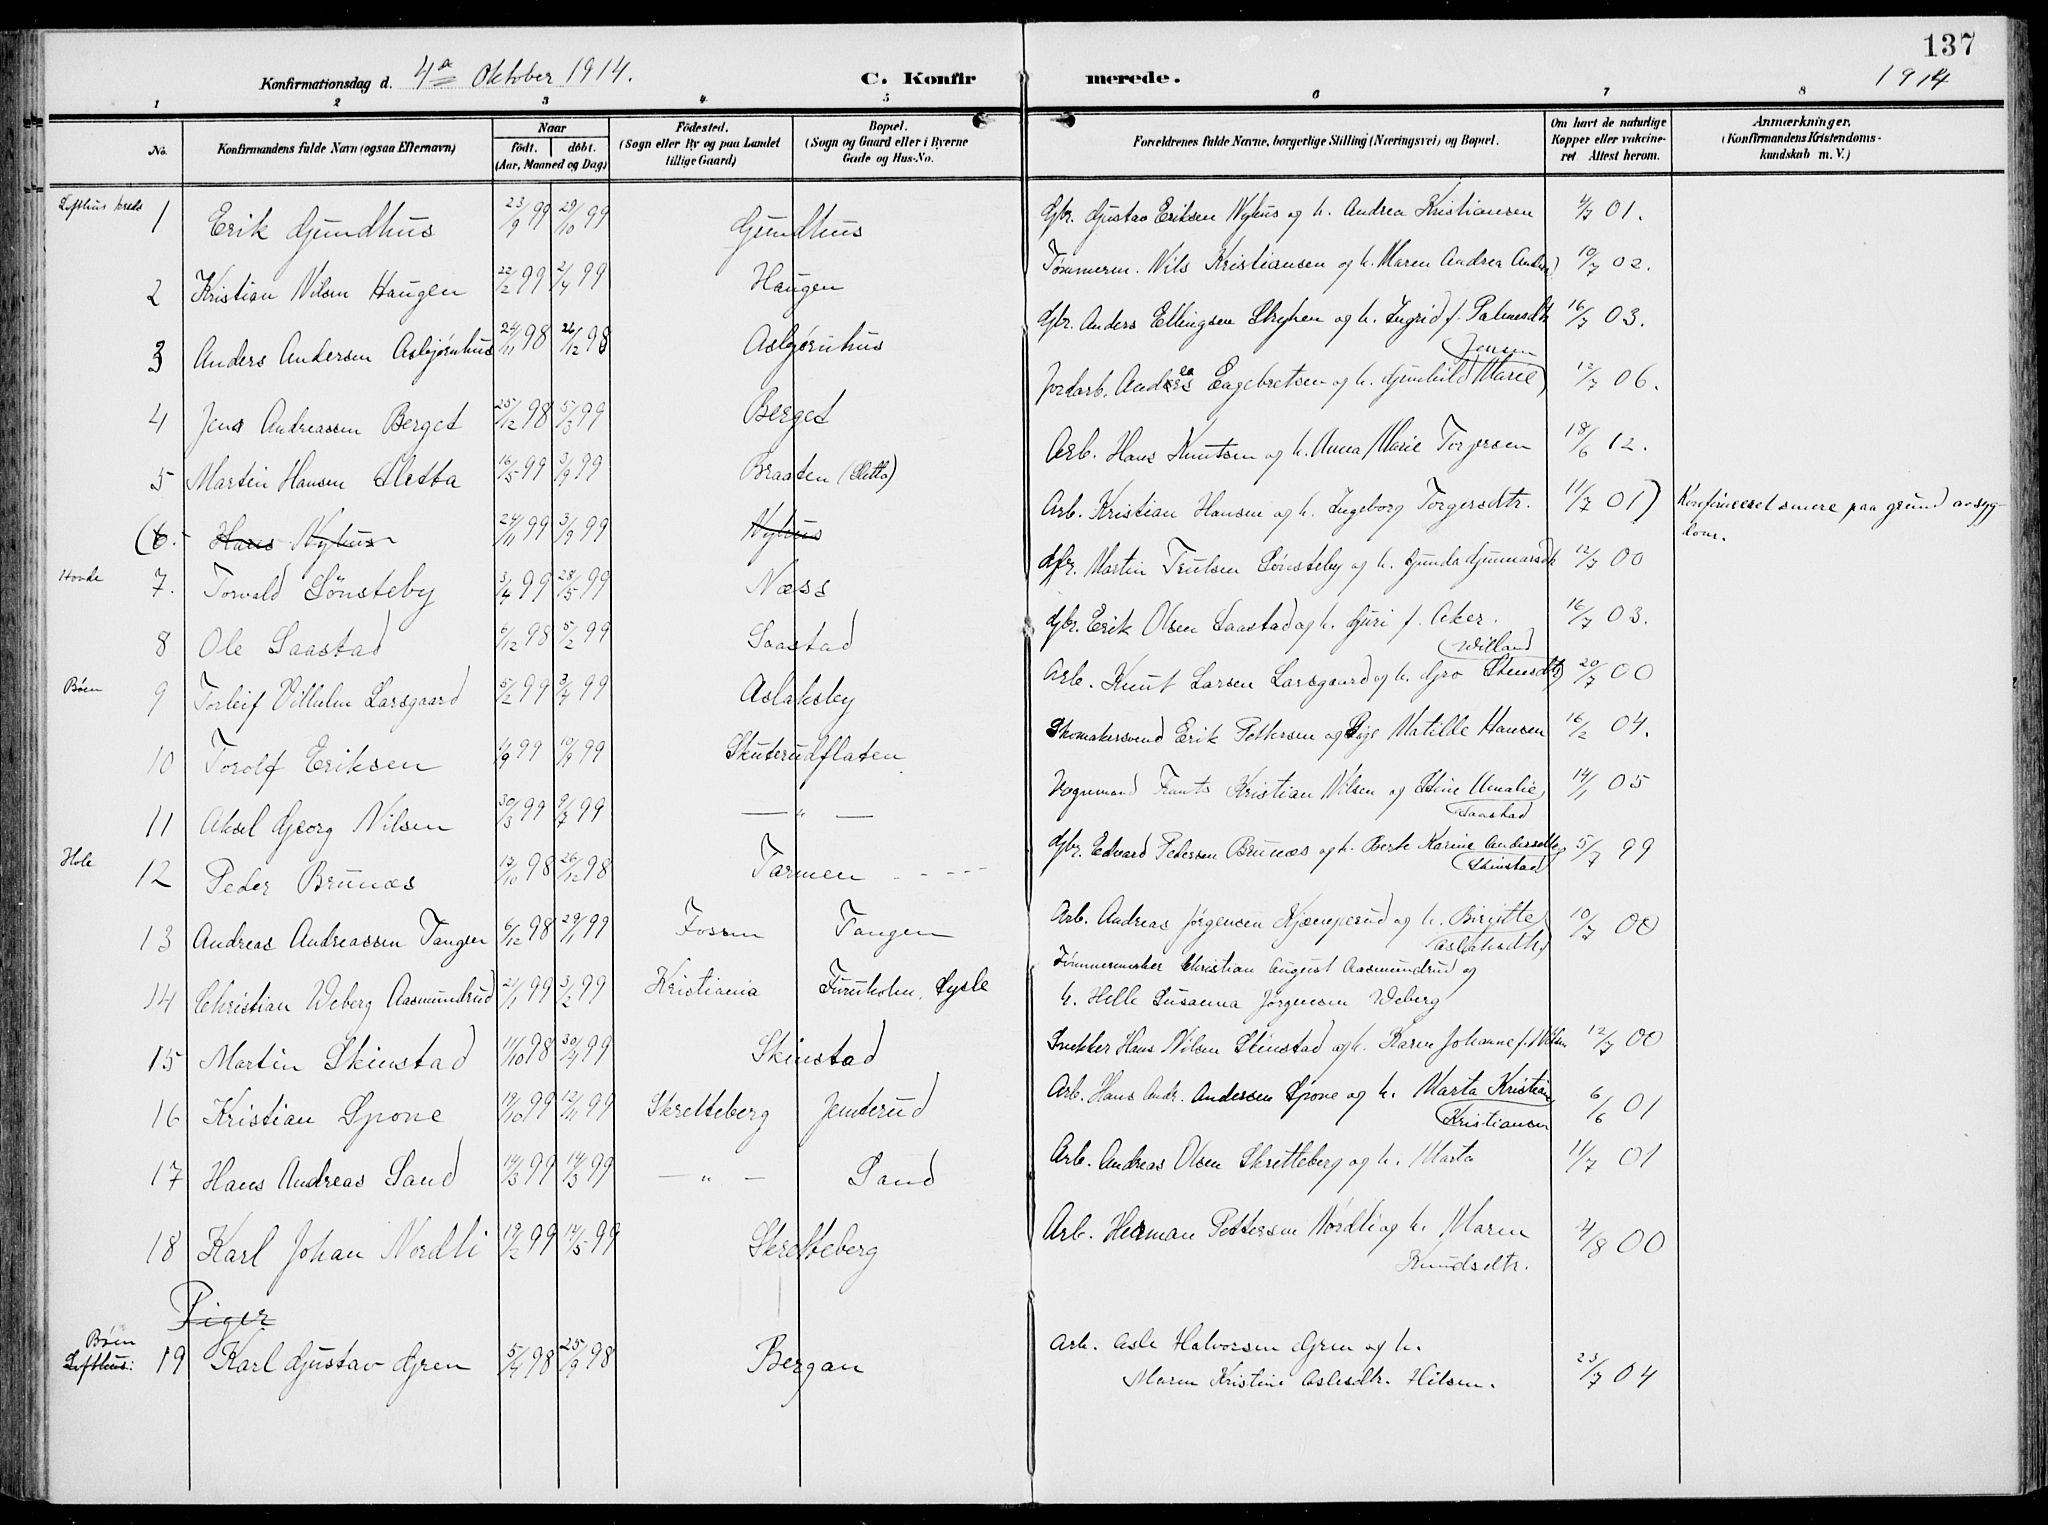 137
Konfirmationsdag d. 4de Oktober 1914.
C. Konfirmerede.
1914
1 2 3 4 5 6 7 8
No.
Konfirmandens fulde Navn (ogsaa Efternavn)
Naar
födt. döbt.
(Aar, Maaned og Dag)
Födested.
(Sogn eller By og paa Landet
tillige Gaard)
Bopæl.
(Sogn og Gaard eller i Byerne
Gade og Hus-No.
Forældrenes fulde Navne, borgerlige Stilling (Næringsvei) og Bopæl.
Om havt de naturlige
Kopper eller vakcine-
ret Attest herom.
Anmærkninger.
(Konfirmandens Kristendoms-
kundskab m. V.)
Lofthus kreds 1 Erik Gjundhus 23/9 99 29/10 99 Gjundhus Gbr. Gustav Eriksen Nyhus og h. Andrea Kristiansen 4/7 01.
2 Kristian Nilsen Haugen 22/2 99 2/4 99 Haugen Tømmerm. Nils Kristiansen og h. Maren Andrea 10/7 02.
3 Anders Andersen Asbjørnhus 24/11 98 26/12 98 Asbjørnhus Gbr. Anders Ellingsen og h. Ingrid f. Palmesdtr 16/7 03.
4 Jens Andreassen Berget 25/12 98 5/3 99 Berget Jordarb. Andreas Engebretsen og h. Gunhild Marie Jensen 12/7 06.
5 Martin Hansen Sletta 16/5 99 3/9 99 Braaten (Sletta) Arb. Hans Knutsen og h. Anna Marie Torjersen 18/6 12.
(6. Hans Nyhus 24/11 99 3/9 99 Nyhus Arb. Kristian Hansen og h. Ingeborg Torgersdtr. 11/7 01) Konfirmeret senere paa grund av syg-
dom.
Hovde 7. Torvald Sønsteby 3/4 99 28/5 99 Næss Gbr. Martin Trulsen Sønsteby og h. Gunda Gunnarsdtr 12/7 00
8 Ole Saastad 6/12 98 5/2 99 Saastad Gbr. Erik Olsen Saastad og h. Guri f. Aker. 16/7 03.
Bøen 9 Torleif Vilhelm Larsgaard 5/2 99 3/4 99 Aslaksby Arb. Knut Larsen Larsgaard og h. Gro Stensdtr Willand 20/7 00
10 Torolf Eriksen 1/9 99 10/9 99 Skuterudflaten Skomakersvend Erik Pettersen og Pige Matilde Hansen 16/2 04.
11 Aksel Georg Nilsen 30/3 99 9/7 99 — " — Vognmand Frants Kristian Nilsen og Stine Amalie Saastad 14/1 05
Hole 12 Peder Brunæs 17/10 98 26/12 98 Tarmen - - - - - Gbr. Edvard Pedersen Brunæs og h. Berte Karine Andersdtr Skinstad 5/7 99
13 Andreas Andreassen Tangen 6/12 98 29/1 99 Fossen Tangen Arb. Andreas Jørgensen og h. Birgitte Aslaksdtr 10/7 00
14 Christian Weberg Aasmundrud 21/1 99 3/2 99 Kristiania Furuholm, Sysle Tømmermerker Christian August Aasmundrud og
h. Helle Susanna Jørgensen Weberg
15 Martin Skinstad 11/10 98 30/4 99 Skinstad Snekker Hans Nilsen Skinstad og h. Karen Johanne f. Nilsen 12/7 00
16 Kristian Spone 19/10 99 12/11 99 Skretteberg Jenterud Arb. Hans Andr. Andersen Spone og h. Marta Kristine Kristiansen 6/6 01
17 Hans Andreas Sand 14/3 99 14/3 99 — " — Sand Arb. Andreas Olsen Skretteberg og h. Marta 11/7 01
18 Karl Johan Nordli 19/2 99 14/5 99 Skretteberg Arb. Herman Pettersen Nordli og h. Maren
Knudsdtr. 4/8 00
Piger
Bøen
Lofthus: 19 Karl Gustav Gren 5/4 98 25/9 98 Bergan Arb. Asle Halvorsen Gren og h.
Maren Kristine Aslesdtr. Hilsen. 23/7 04